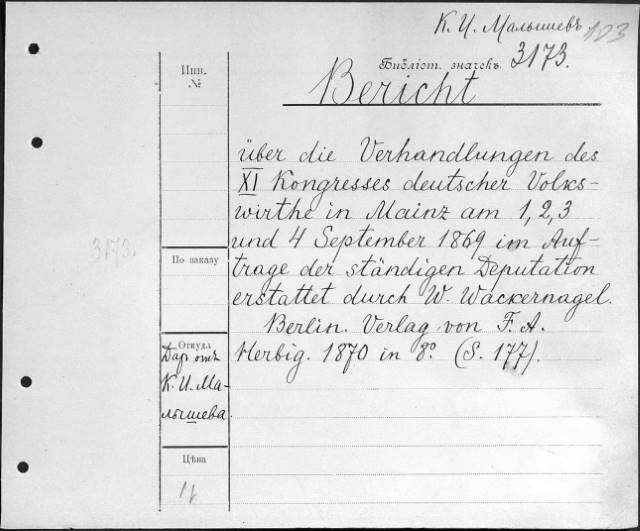 К. И. Малышевъ 103
Библіот. значекъ 3173.
Инв.
№
Bericht
über die Verhandlungen des
XI Kongresses deutscher Volks-
wirthe in Mainz am 1, 2, 3
und 4 September 1869 im Auf-
trage der ständigen Deputation
erstattet durch W. Wackernagel.
Berlin. Verlag von F. A.
Herbig. 1870 in 8º. (S. 177).
3173.
По заказу
Откуда
Даръ отъ
К. И. Ма-
лышева.
Цѣна